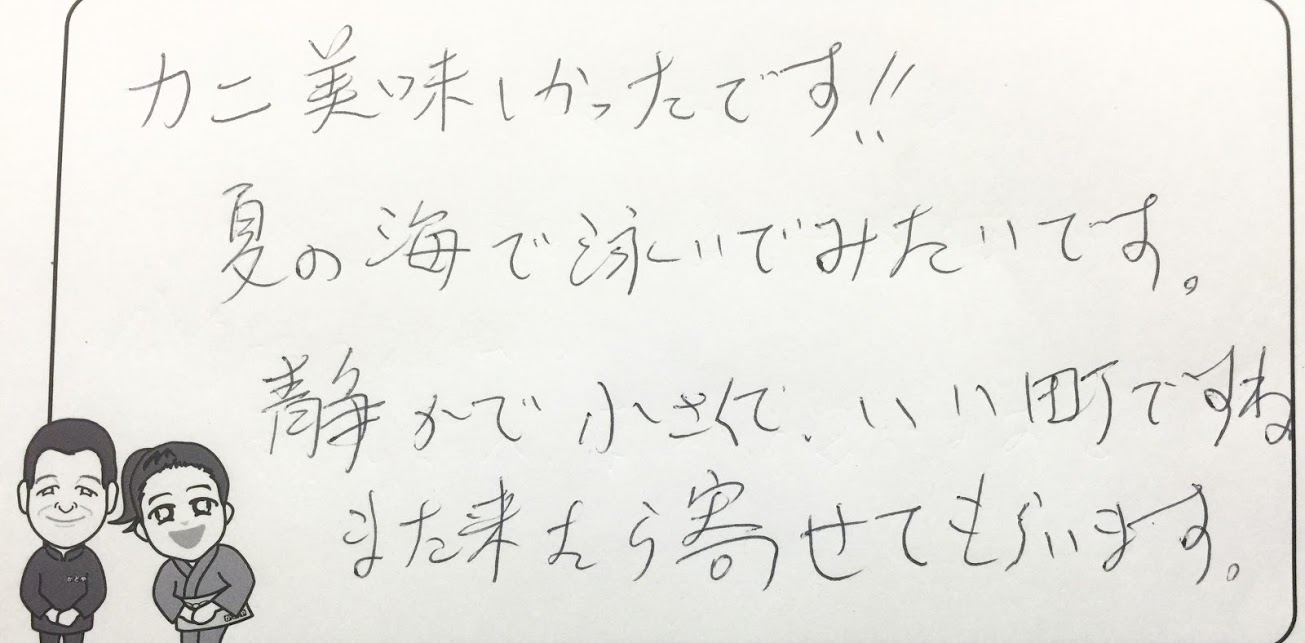 カニ美味しかったです!!
夏の海で泳いでみたいです。
静かで小さくて、いい町ですね
また来たら寄せてもらいます。
かどや